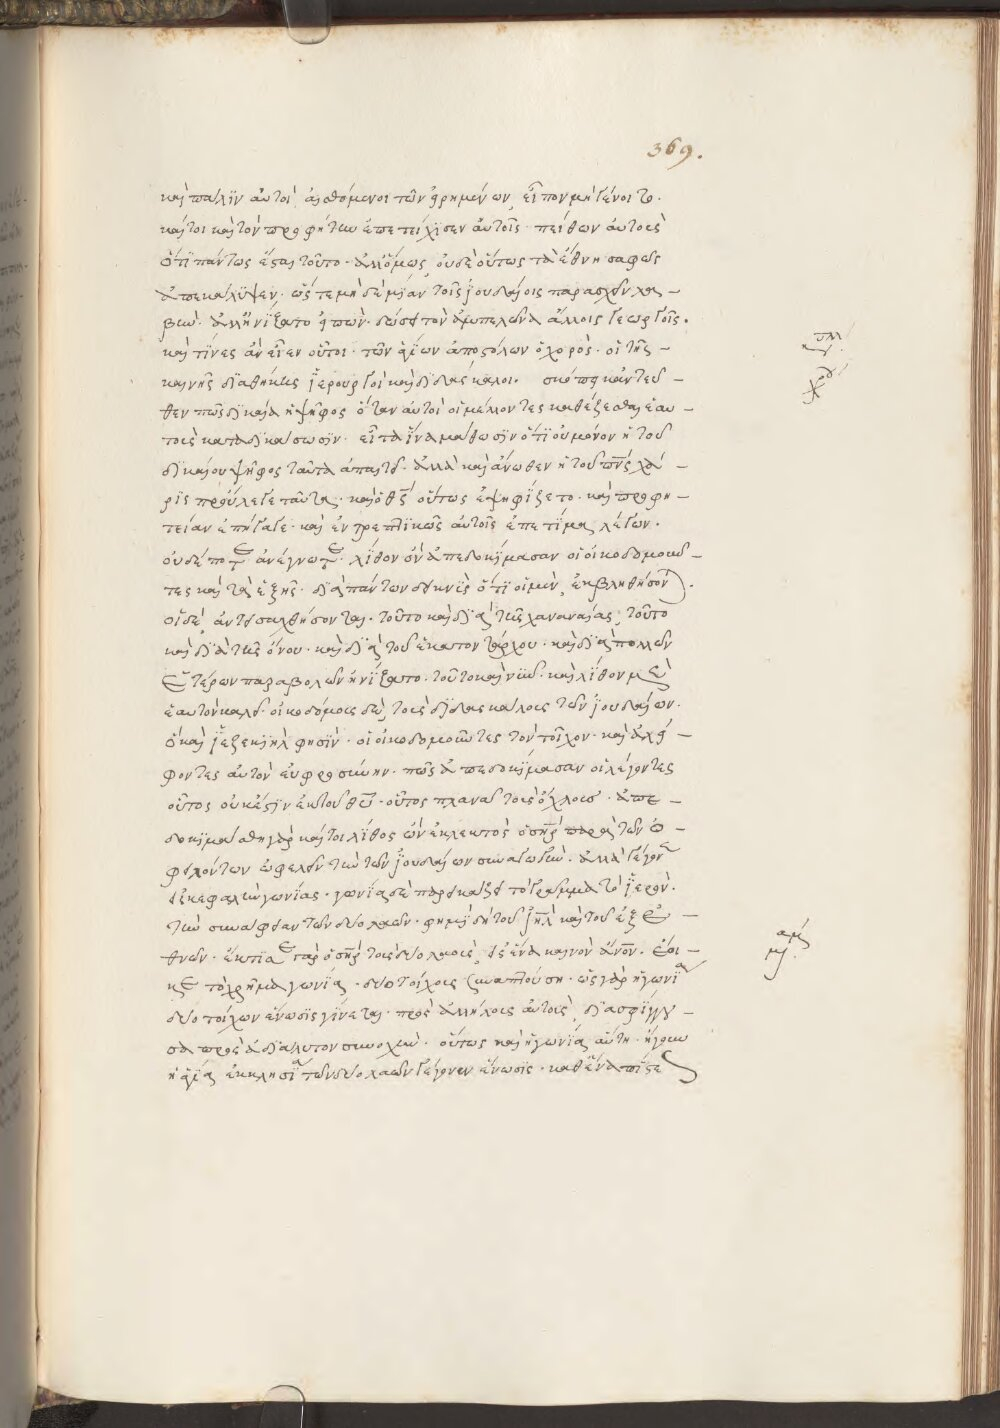 369.
καὶ πάλιν αὐτοὶ αἰσθόμενοι τῶν εἰρημένων, εἶπον μὴ γένοιτο.
καίτοι καὶ τὸν προφήτην ἐπετείχισεν αὐτοῖς· πείθων αὐτοὺς
ὅτι πάντως ἔσται τοῦτο· ἀλλ' ὅμως, οὐδὲ οὕτως τὰ ἔθνη σαφῶς
ἀπεκάλυψεν, ὥστε μηδὲ μίαν τοῖς ἰουδαίοις παρασχεῖν λα-
βήν· ἀλλ' ἠνίξατο εἰπών· δώσει τὸν ἀμπελῶνα ἄλλοις γεωργοῖς.
καὶ τίνες ἂν εἶεν οὗτοι· τῶν ἁγίων ἀποστόλων ὁ χορὸς· οἱ τῆς
καινῆς διαθήκης ἱερουργοὶ καὶ διδάσκαλοι. σκόπει κἀντεῦ-
θεν πῶς δικαία ἡ ψῆφος ὅταν αὐτοὶ οἱ μέλλοντες καθέξεσθαι ἑαυ-
τοὺς καταδικάσωσιν· εἶτα ἵνα μάθωσιν ὅτι οὐ μόνον ἡ τοῦ
δικαίου ψῆφος ταῦτα ἀπαιτεῖ· ἀλλὰ καὶ ἄνωθεν ἡ τοῦ πνς χά-
ρις προύλεγε ταῦτα· καὶ ὁ θς οὕτως ἐψηφίζετο· καὶ προφη-
τείαν ἐπήγαγε· καὶ ἐντρεπτικῶς αὐτοῖς ἐπετίμα, λέγων.
οὐδέποτε ἀνέγνωτε· λίθον ὃν ἀπεδοκίμασαν οἱ οἰκοδομοῦν-
τες καὶ τὰ ἑξῆς· διὰ πάντων δεικνὺς ὅτι οἱ μὲν, ἐκβληθήσονται.
οἱ δὲ, ἀντεισαχθήσονται. τοῦτο καὶ διὰ τῆς χαναναίας, τοῦτο
καὶ διὰ τῆς ὄνου· καὶ διὰ τοῦ ἑκατοντάρχου· καὶ διὰ πολλῶν
ἑτέρων παραβολῶν ἠνίξατο. τοῦτο καὶ νῦν. καὶ λίθον μὲν
ἑαυτὸν καλεῖ· οἰκοδόμους δὲ, τοὺς διδασκάλους τῶν ἰουδαίων.
ὃ καὶ ἰεζεκιὴλ φησὶν· οἱ οἰκοδομοῦντες τὸν τοῖχον· καὶ ἀλεί-
φοντες αὐτὸν πῶς ἀπεδοκίμασαν οἱ λέγοντες
οὗτος οὐκ ἔστιν ἐκ τοῦ θυ· οὗτος πλανᾷ τοὺς ὄχλους. ἀπε-
δοκιμάσθη γὰρ καίτοι λίθος ὢν ἐκλεκτὸς ὁ σηρ παρὰ τῶν ὀ-
φειλόντων ὠφελεῖν τὴν τῶν ἰουδαίων συναγωγήν. ἀλλὰ γέγονεν
εἰς κεφαλὴν γωνίας. γωνίας δὲ παρεικάζει τὸ γράμμα τὸ ἱερὸν.
τὴν συνάφειαν τῶν δύο λαῶν· φημὶ δὴ τοῦ ιηλ καὶ τοῦ ἐξ ἐ-
θνῶν· ἔκτισε γὰρ ὁ σηρ τοὺς δύο λαοὺς, εἰς ἕνα καινὸν ἄνον. ἔοι-
κε τὸ χρῆμα γωνίᾳ, δύο τοίχους συναπτούσῃ· ὡς γὰρ ἡ γωνία
δύο τοίχων ἕνωσις γίνεται, πρὸς ἀλλήλους αὐτοὺς, διασφίγγου-
σα πρὸς ἀδιάλυτον συνοχήν· οὕτως καὶ ἡ γωνία, αὕτη, ἤγουν
ἡ ἁγία ἐκκλησία τῶν δύο λαῶν γέγονεν ἕνωσις·